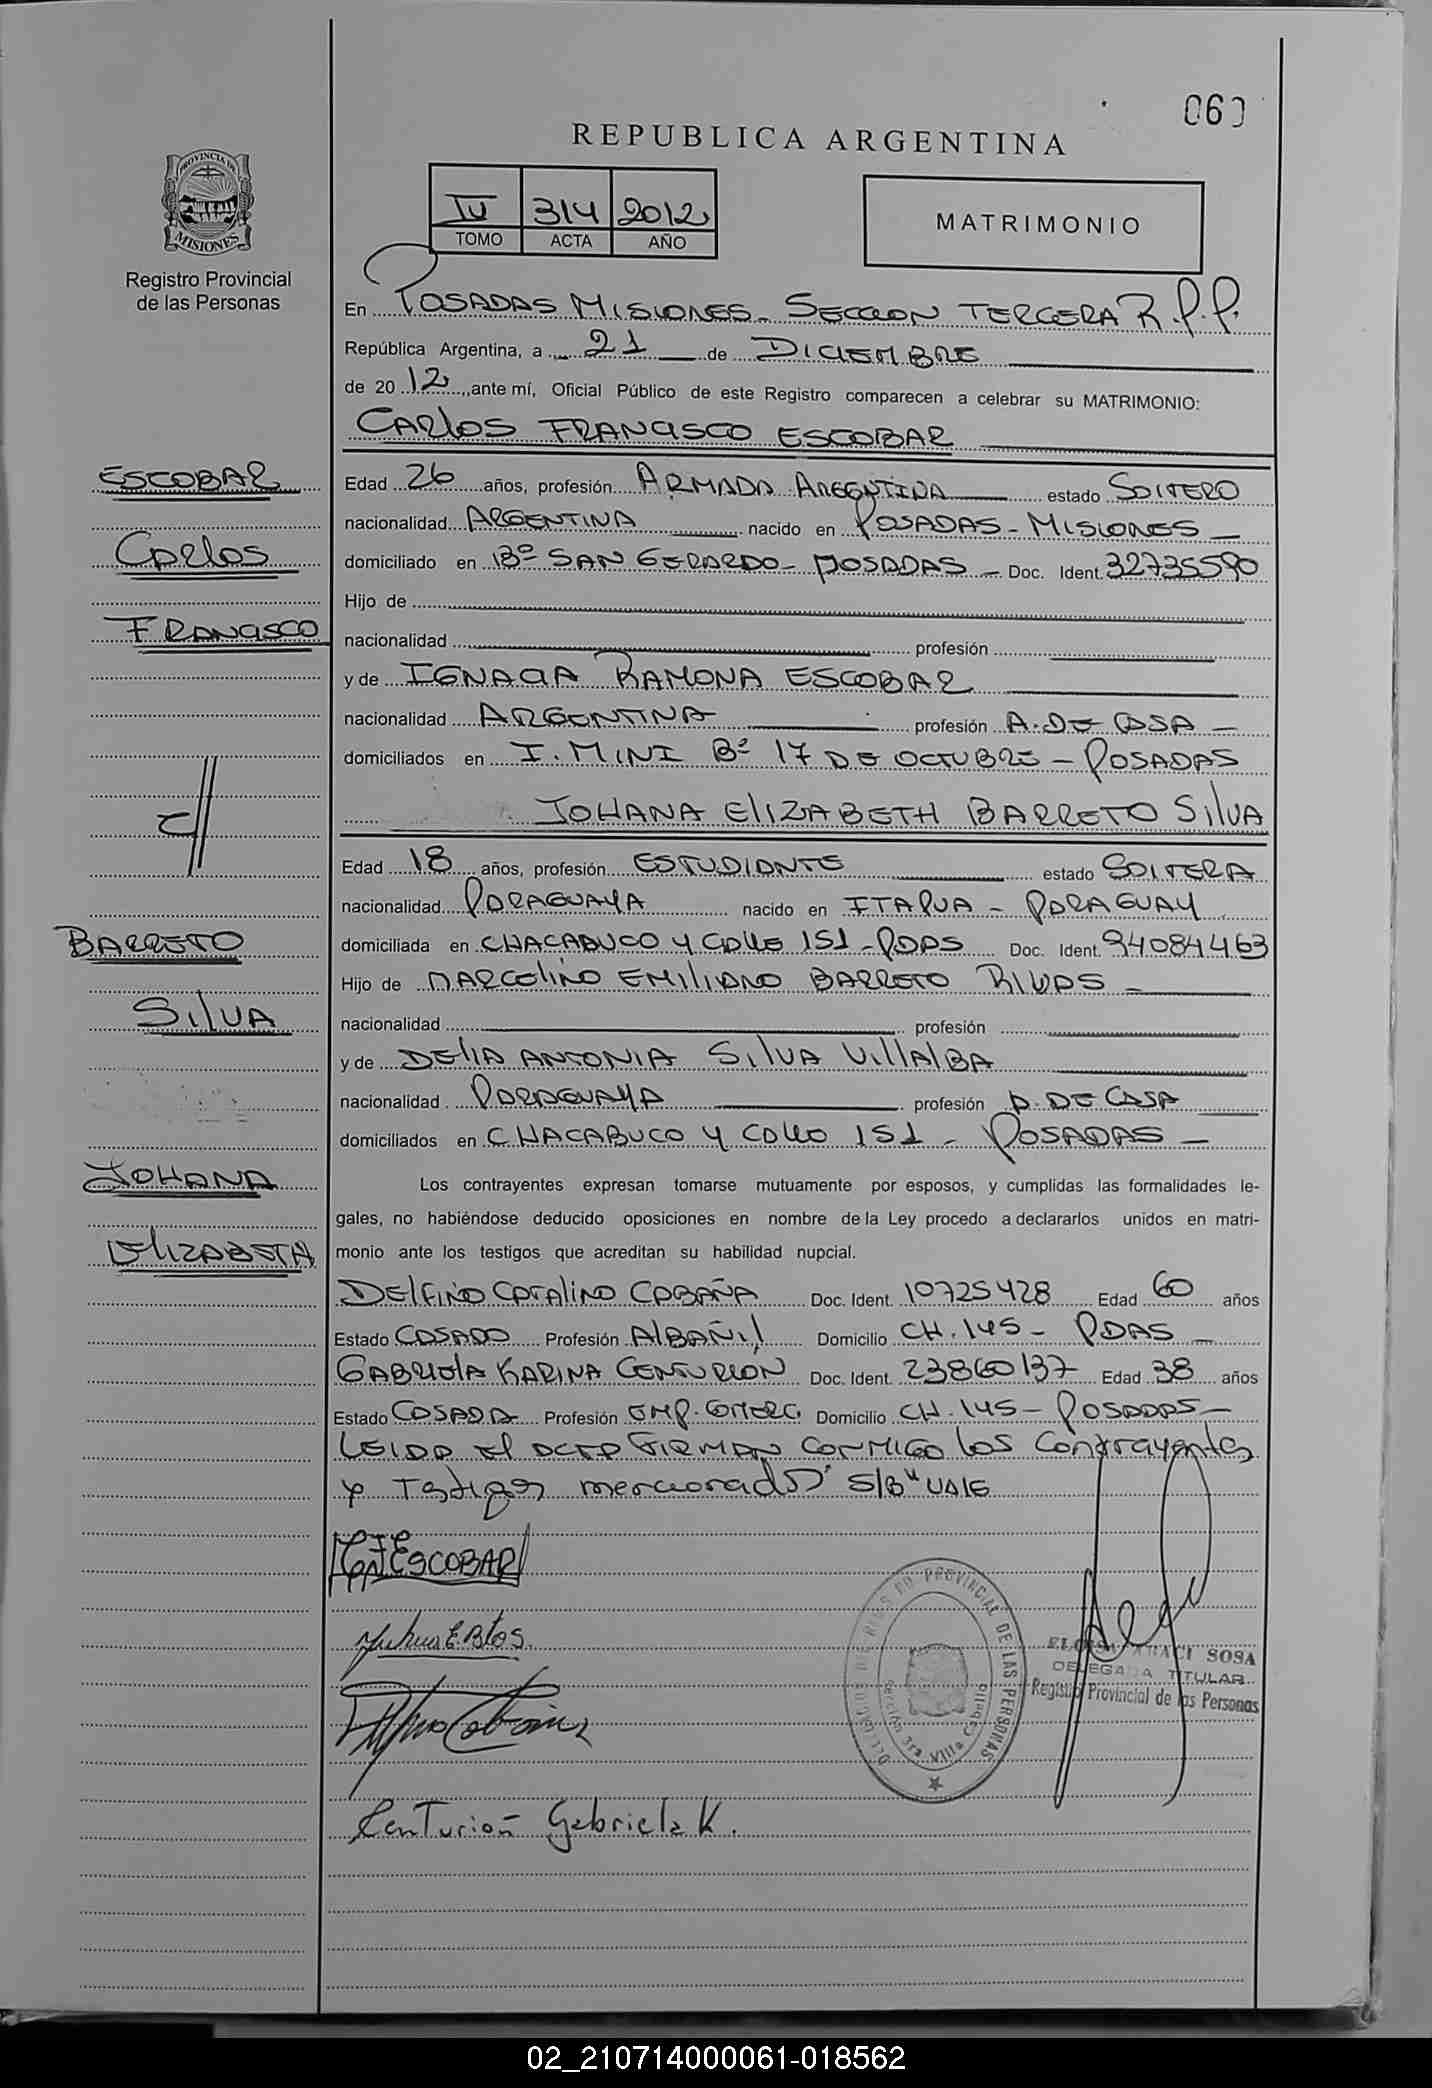 060
REPUBLICA ARGENTINA
PROVINCIA DE
MISIONES
Registro Provincial
de las Personas
IV 314 2012
TOMO ACTA AÑO
MATRIMONIO
En POSADAS MISIONES - SECCION TERCERA R.P.P.
República Argentina, a 21 de DICIEMBRE
de 2012, ante mí, Oficial Público de este Registro comparecen a celebrar su MATRIMONIO:
CARLOS FRANCISCO ESCOBAR
ESCOBAR
Carlos
FRANCISCO
Edad 26 años, profesión ARMADA ARGENTINA estado SOLTERO
nacionalidad ARGENTINA nacido en POSADAS - MISIONES
domiciliado en Bº SAN GERARDO - POSADAS - Doc. Ident. 32735590
Hijo de
nacionalidad profesión
y de IGNACIA RAMONA ESCOBAR
nacionalidad ARGENTINA profesión A. DE CASA -
domiciliados en I. MINI Bº 17 DE OCTUBRE - POSADAS
JOHANA ELIZABETH BARRETO SILVA
c//
BARRETO
SILVA
JOHANA
ELIZABETH
Edad 18 años, profesión ESTUDIANTE estado SOLTERA
nacionalidad PARAGUAYA nacido en ITAPUA - PARAGUAY
domiciliada en CHACABUCO Y CALLE 151 - PDAS Doc. Ident. 94084463
Hijo de MARCELINO EMILIANO BARRETO RIVAS -
nacionalidad profesión
y de DELIA ANTONIA SILVA VILLALBA
nacionalidad PARAGUAYA profesión A. DE CASA
domiciliados en CHACABUCO Y CALLE 151 - POSADAS -
Los contrayentes expresan tomarse mutuamente por esposos, y cumplidas las formalidades le-
gales, no habiéndose deducido oposiciones en nombre de la Ley procedo a declararlos unidos en matri-
monio ante los testigos que acreditan su habilidad nupcial.
DELFINO CATALINO CABAÑA Doc. Ident. 10725428 Edad 60 años
Estado CASADO Profesión ALBAÑIL Domicilio CH. 145 - PDAS
GABRIELA KARINA CENTURION Doc. Ident. 23860137 Edad 38 años
Estado CASADA Profesión EMP. COMERC. Domicilio CH. 145 - POSADAS -
LEIDA EL ACTA FIRMAN CONMIGO LOS Contrayentes
y Testigos mencionados S/B" VALE
ESCOBAR
DELEGACION DEL REGISTRO PROVINCIAL DE LAS PERSONAS
Sección 3ra. Villa Cabello
SOSA
DELEGADA TITULAR
Registro Provincial de las Personas
Centurión Gabriela K.
02_210714000061-018562